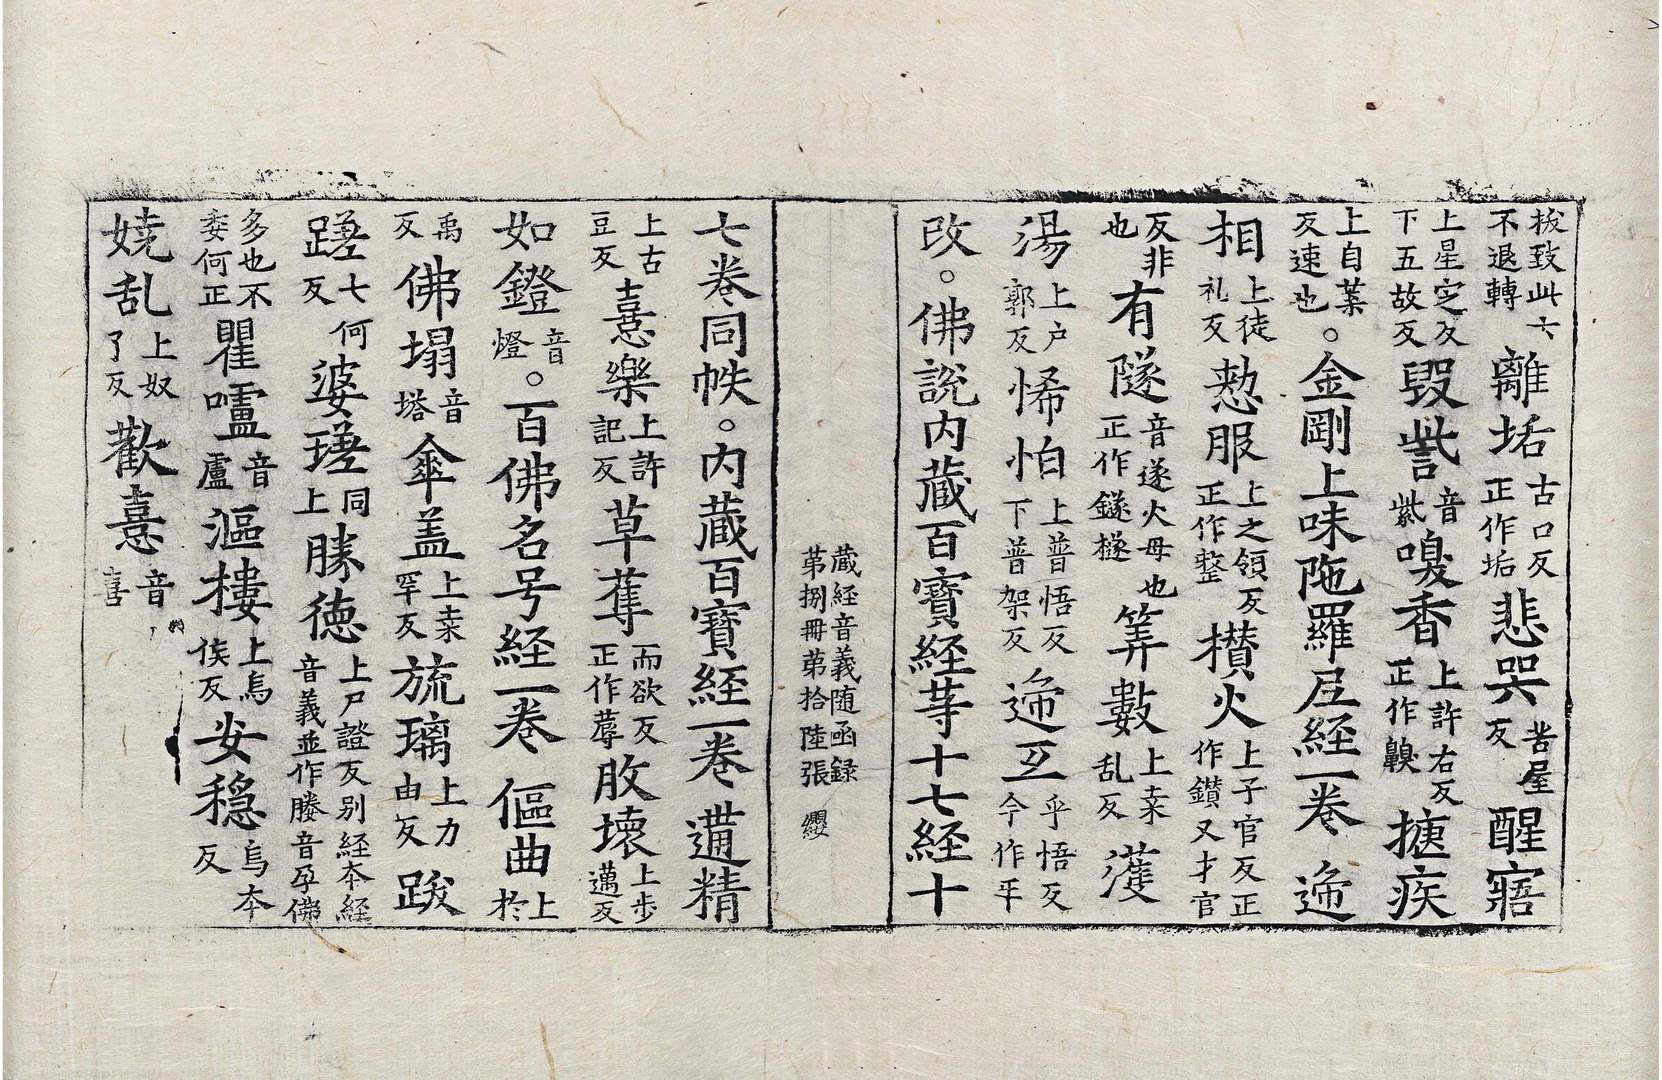 拔致此六不退轉離垢古口反正作垢悲哭苦屋反醒寤
上星定反下五故反毀訾音紫嗅香上許右反正作齅㨄疾
上自葉反速也。金剛上味陁羅尼經一卷 遆
相上徒礼反愸服上之領反正作整攅火上子官反正作鑚又才官
反非也有隧音遂火母也正作鐩㯌筭數上桒乱反濩
湯上戶郭反悕怕上普悟反下普架反遆互乎悟反今作平
改。佛說内蔵百寶經䓁十七経十
蔵経音義随函録
苐捌冊苐拾陸張 纓
七卷同帙。内蔵百寶経一卷 遘精
上古豆反憙樂上許記反草蓐而欲反正作蓐敗壞上步邁反
如鐙音燈。百佛名号経一卷 傴曲上於
禹反佛塌音塔傘盖上桒罕反旒璃上力由反跋
蹉七何反婆瑳同上勝德上尸證反别経夲経音義並作塍音孕佛
多也不委何正瞿嚧音盧漚樓上烏侯反安穏烏夲反
嬈乱上奴了反歡憙音喜